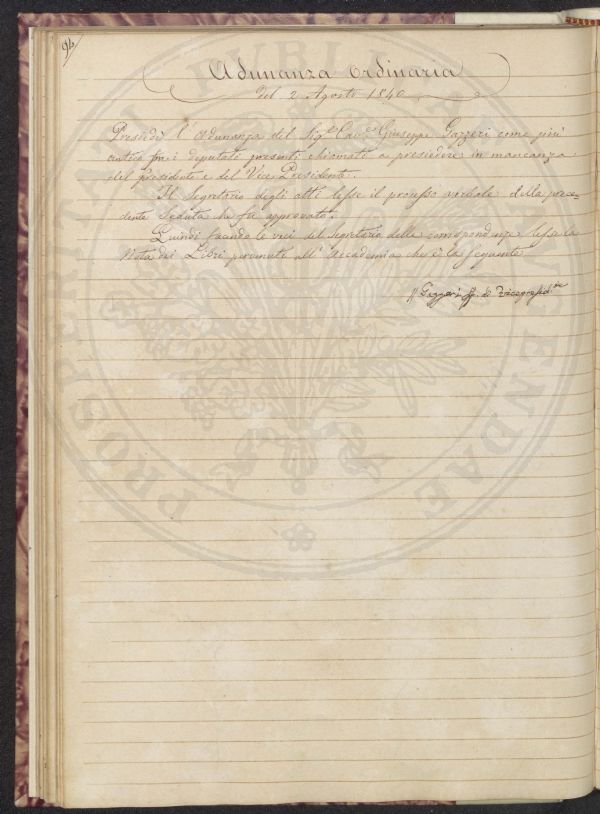 94
Adunanza Ordinaria
del 2 Agosto 1840
Presiedè l'Adunanza del Sig.e Cav.e Giuseppe Gazzeri come più
antico fra i deputati presenti chiamati a presiedere in mancanza
del presidente e del Vice Presidente.
Il Segretario degli atti lesse il processo verbale della prece-
dente Seduta che fu approvato.
Quindi facendo le veci del segretario delle corrispondenze lesse la
Nota dei Libri pervenuti all'Accademia che è la seguente
G Gazzeri ff. di Vicepresid.te
PROSPERITATI PUBLICAE AUGENDAE